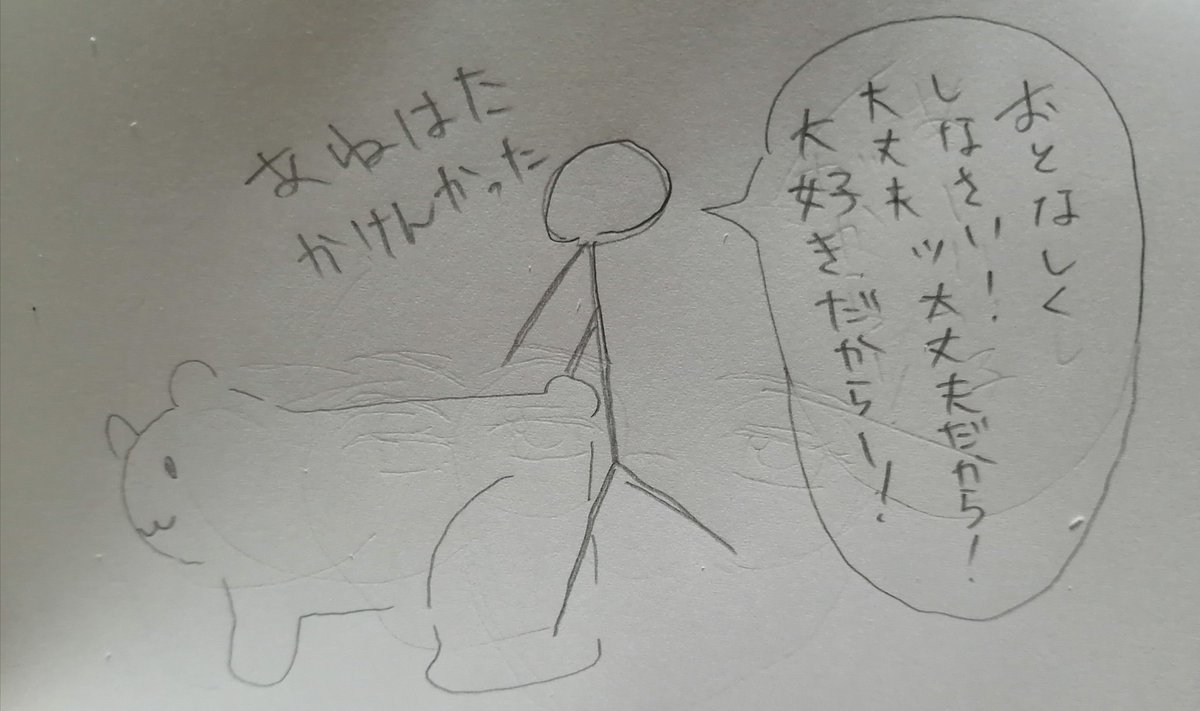 おとなしく
しなさい!
大丈夫ッ大丈夫だから!
大好きだからー!
あねはた
かけんかった